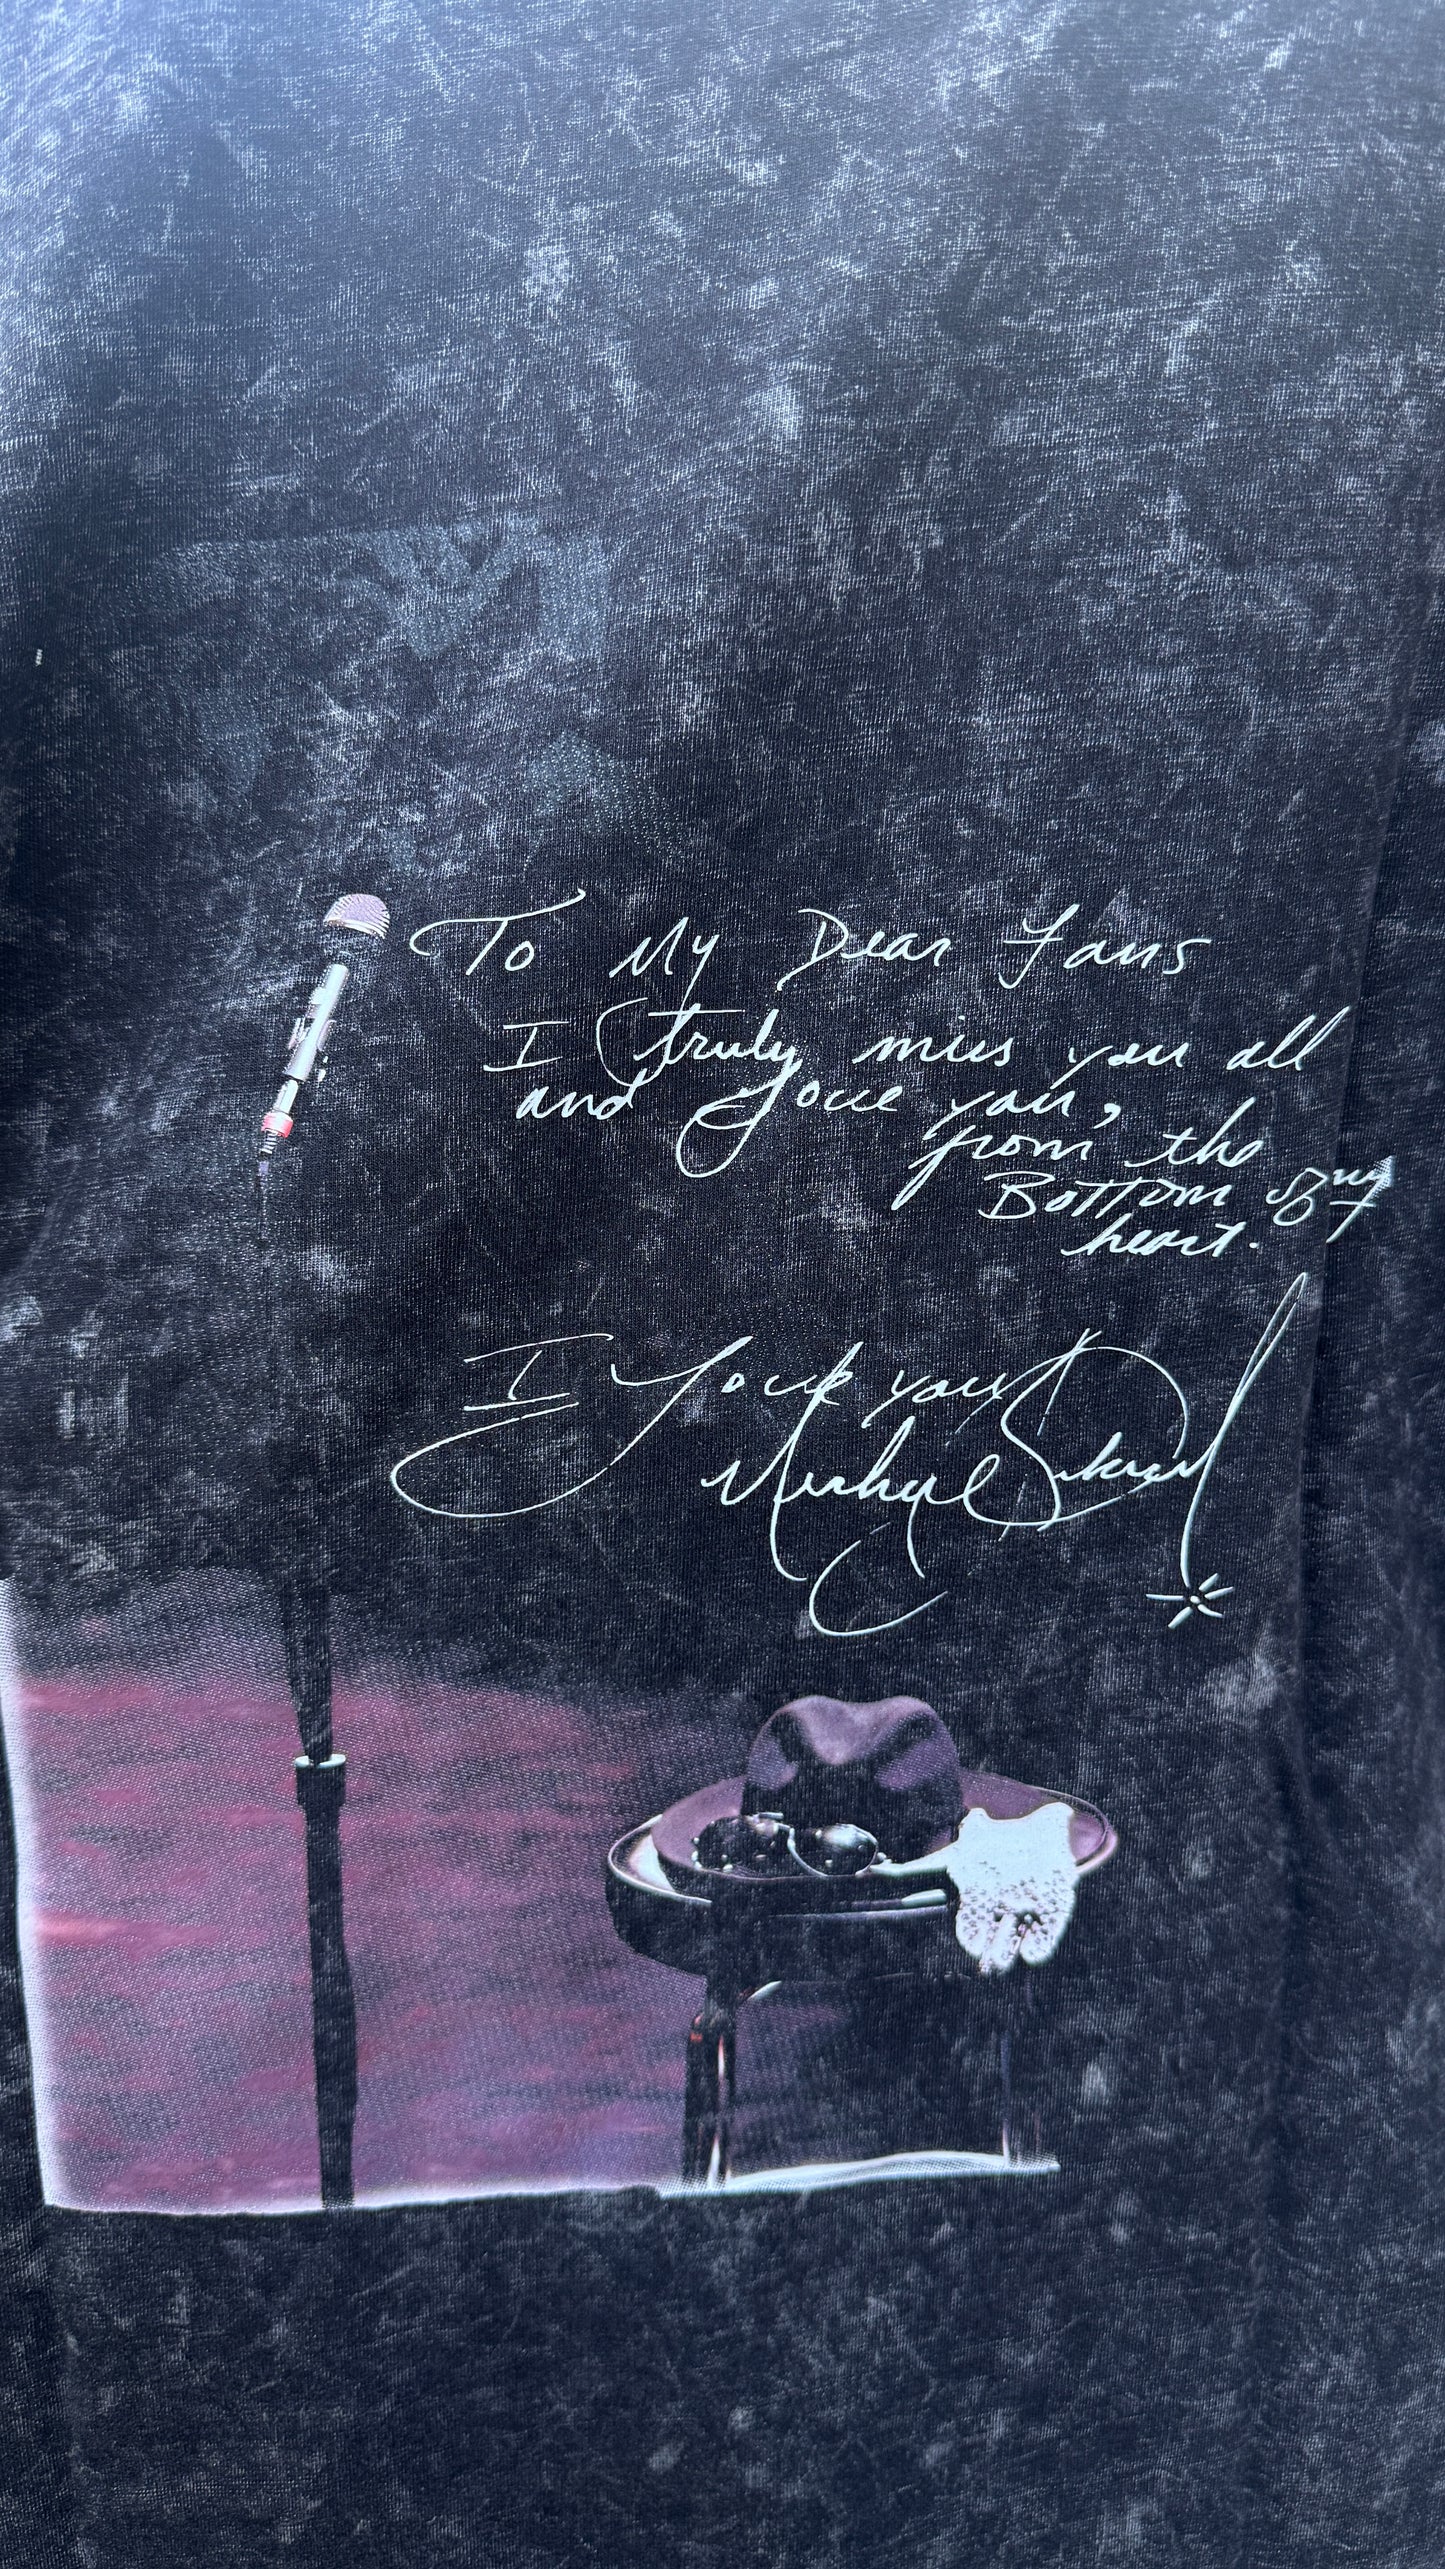 To My Dear Fans
I truly miss you all
and Love you,
from the
Bottom of my
heart.
I Love you
Michael Jackson